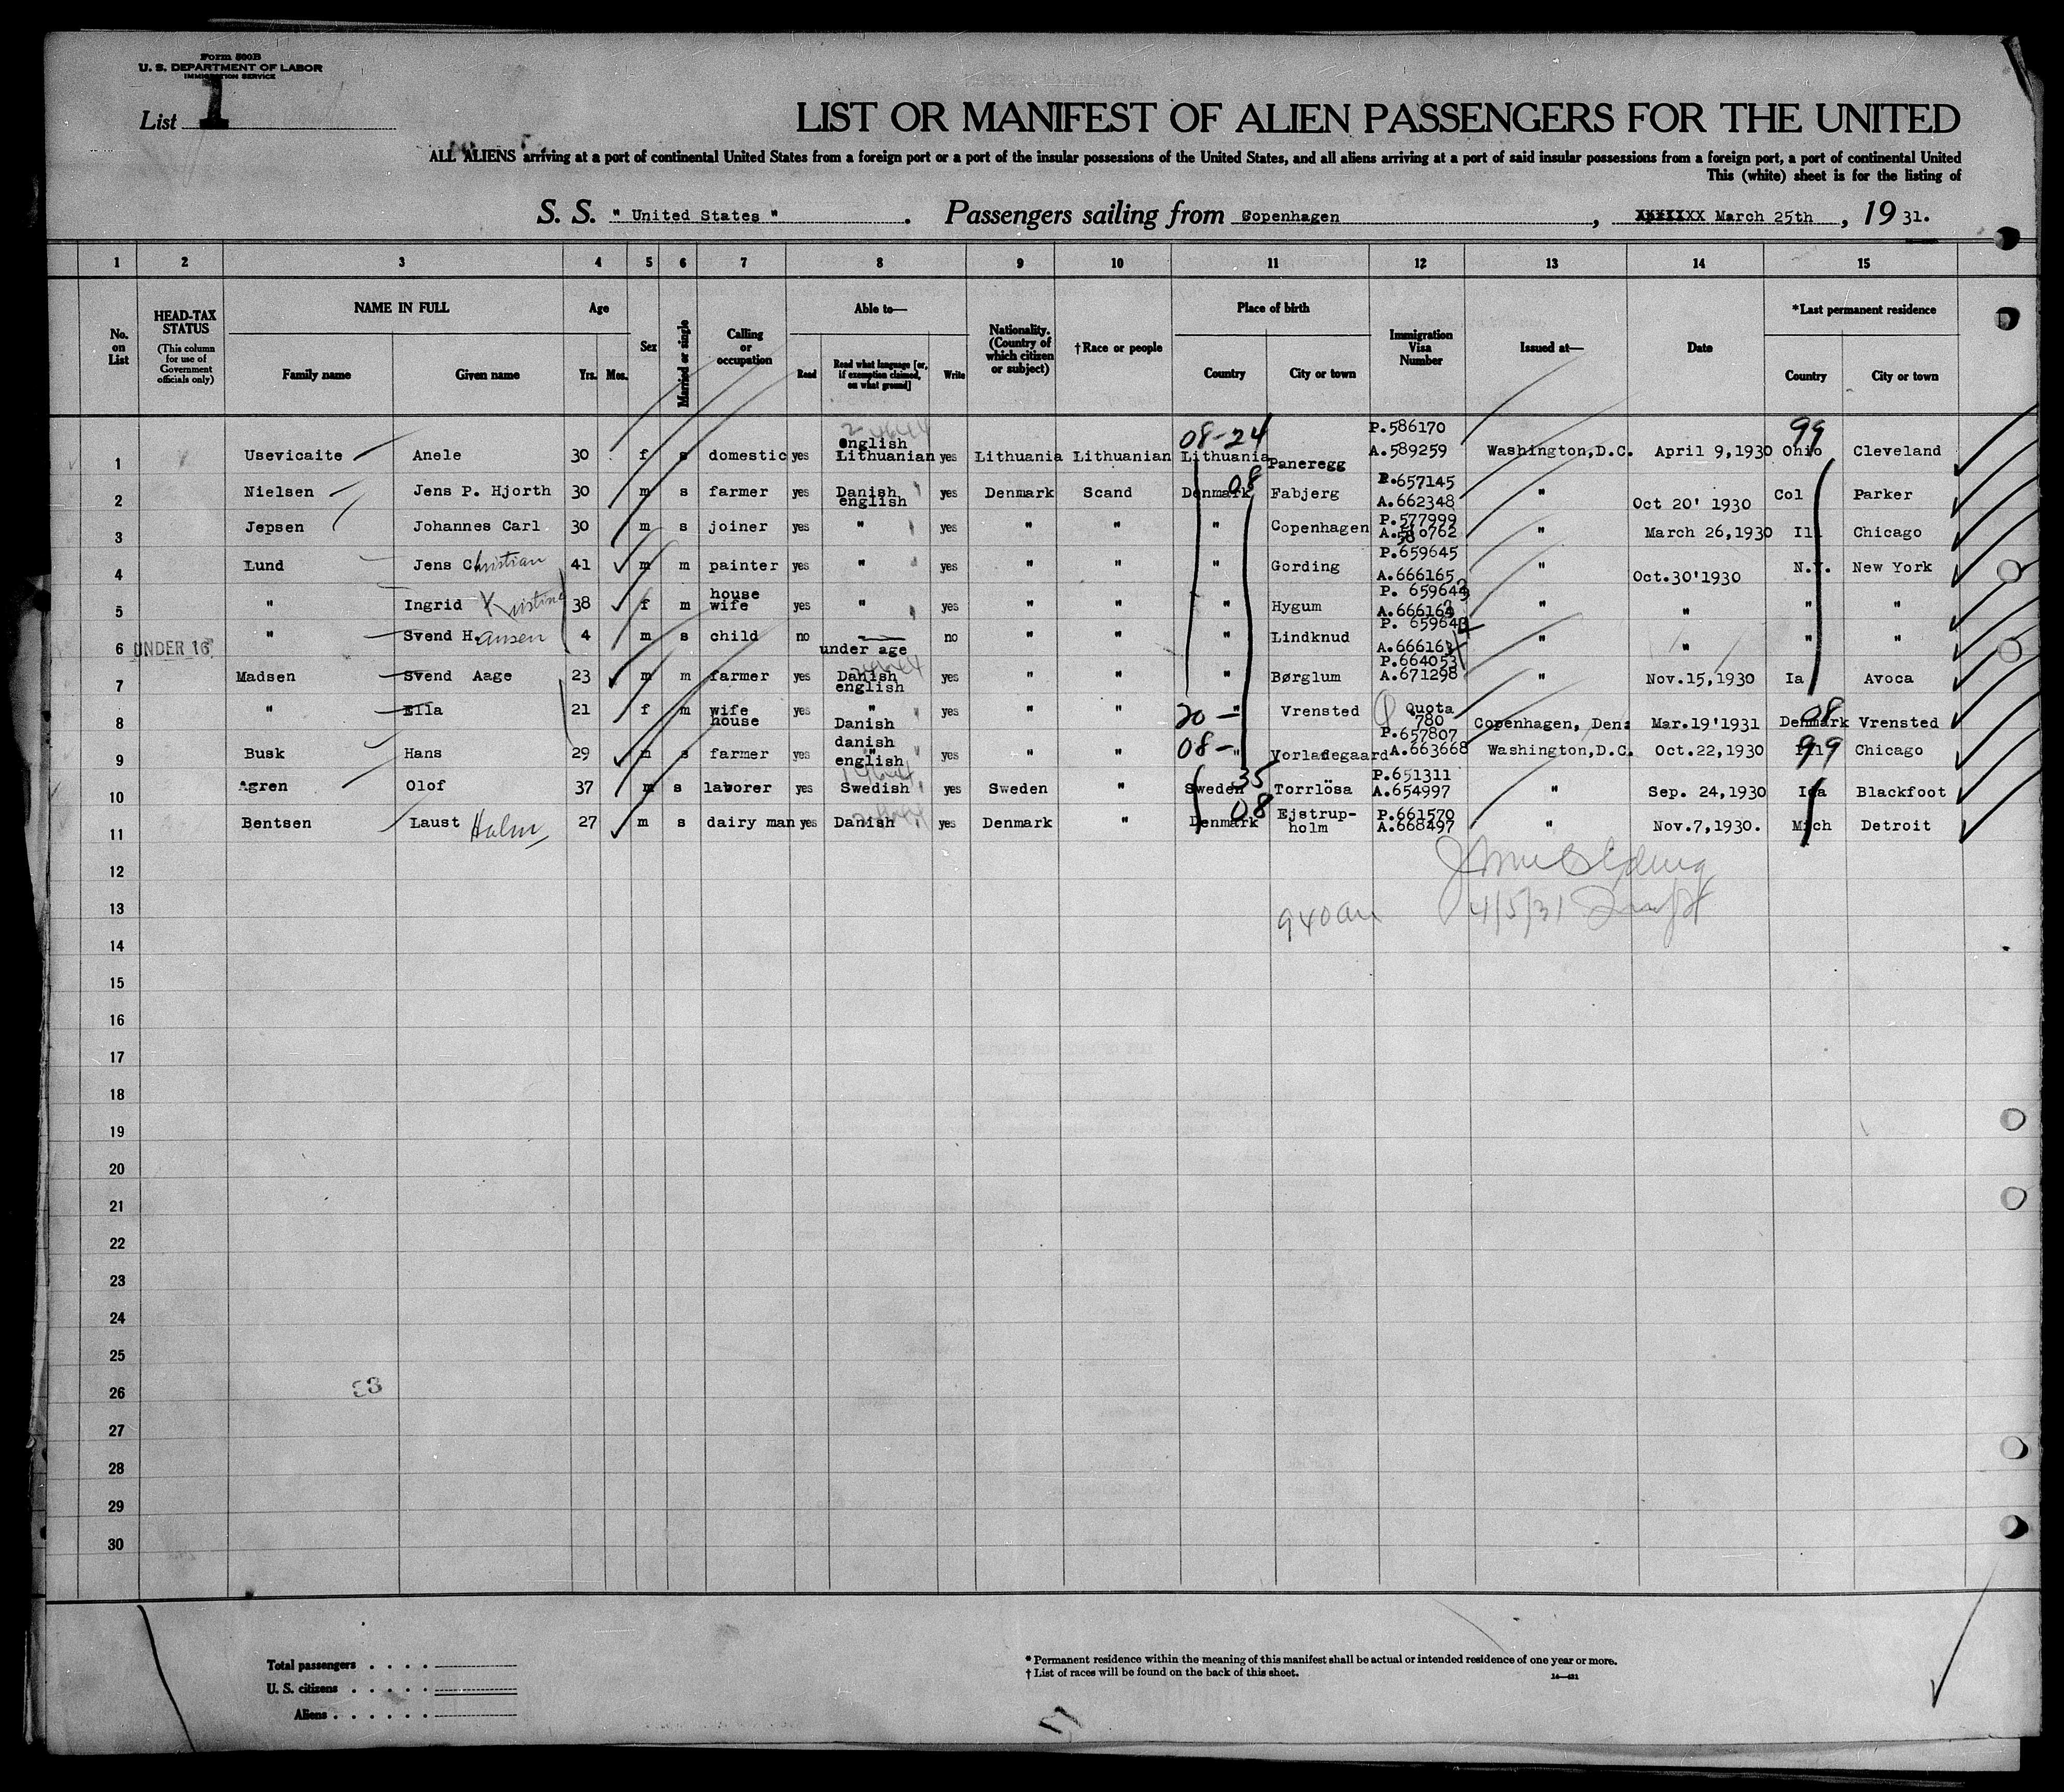 Form 500B
U. S. DEPARTMENT OF LABOR
IMMIGRATION SERVICE
List 1
LIST OR MANIFEST OF ALIEN PASSENGERS FOR THE UNITED
ALL ALIENS arriving at a port of continental United States from a foreign port or a port of the insular possessions of the United States, and all aliens arriving at a port of said insular possessions from a foreign port, a port of continental United
This (white) sheet is for the listing of
S. S. " United States " . Passengers sailing from Copenhagen , XXXXXXX March 25th , 19 31.
1 2 3 4 5 6 7 8 9 10 11 12 13 14 15
No. on List
HEAD-TAX STATUS (This column for use of Government officials only)
NAME IN FULL Family name Given name
Age Yrs. Mos.
Sex
Married or single
Calling or occupation
Able to— Read Read what language [or, if exemption claimed, on what ground] Write
Nationality. (Country of which citizen or subject)
†Race or people
Place of birth Country City or town
Immigration Visa Number
Issued at—
Date
*Last permanent residence Country City or town
1 Usevicaite Anele 30 f s domestic yes english Lithuanian yes Lithuania Lithuanian 08-24 Lithuania Paneregg P.586170 A.589259 Washington,D.C. April 9,1930 99 Ohio Cleveland
2 Nielsen Jens P. Hjorth 30 m s farmer yes Danish english yes Denmark Scand 08 Denmark Fabjerg P.657145 A.662348 " Oct 20' 1930 Col Parker
3 Jepsen Johannes Carl 30 m s joiner yes " yes " " " Copenhagen P.577999 A.580762 " March 26,1930 Ill Chicago
4 Lund Jens Christian 41 m m painter yes " yes " " " Gording P.659645 A.666165 " Oct.30'1930 N.Y. New York
5 " Ingrid Kristine 38 f m house wife yes " yes " " " Hygum P. 659643 A.666163 " " " "
6 UNDER 16 " Svend Hansen 4 m s child no under age no " " " Lindknud P. 659644 A.666164 " " " "
7 Madsen Svend Aage 23 m m farmer yes Danish english yes " " " Børglum P.664053 A.671298 " Nov.15,1930 Ia Avoca
8 " Ella 21 f m wife house yes " Danish yes " " 20 — " Vrensted Quota 780 Copenhagen, Den: Mar.19'1931 08 Denmark Vrensted
9 Busk Hans 29 m s farmer yes danish " english yes " " 08- " Vorladegaard P.657807 A.663668 Washington,D.C. Oct.22,1930 99 Chicago
10 Agren Olof 37 m s laborer yes Swedish yes Sweden " 35 Sweden Torrlösa P.651311 A.654997 " Sep. 24,1930 Ida Blackfoot
11 Bentsen Laust Holm 27 m s dairy man yes Danish yes Denmark " 08 Denmark Ejstrup-holm P.661570 A.668497 " Nov.7,1930. Mich Detroit
12
13 940am 4/5/31
14
15
16
17
18
19
20
21
22
23
24
25
26
27
28
29
30
Total passengers . . . .
U. S. citizens . . . . .
Aliens . . . . . .
* Permanent residence within the meaning of this manifest shall be actual or intended residence of one year or more.
† List of races will be found on the back of this sheet.